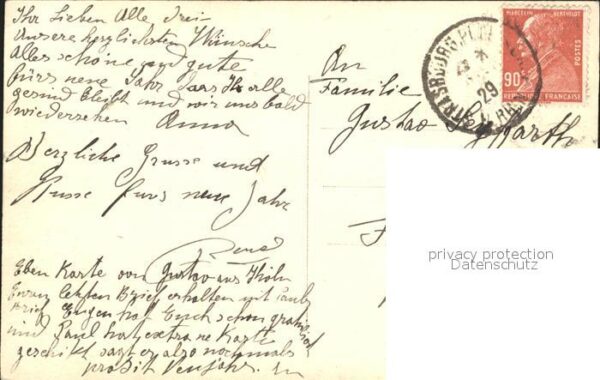 Ihr Lieben Alle Drei
Unsere herzlichsten Wünsche
Alles schöne und gute
fürs neue Jahr dass Ihr alle
gesund bleibt und wir uns bald
wiedersehen Anna
Herzliche Grüsse und
Küsse fürs neue Jahr
René
Eben Karte von Gustav aus Köln
letzten Brief erhalten mit Pauls
Brief Eugen hat Euch schon
und Paul hat extra ne Karte
geschikt sagt er also nochmals
prosit Neujahr.
An
Familie
Gustav Barth
MARCELIN BERTHELOT
POSTES
90c
REPUBLIQUE FRANÇAISE
STRASBOURG
29
privacy protection
Datenschutz